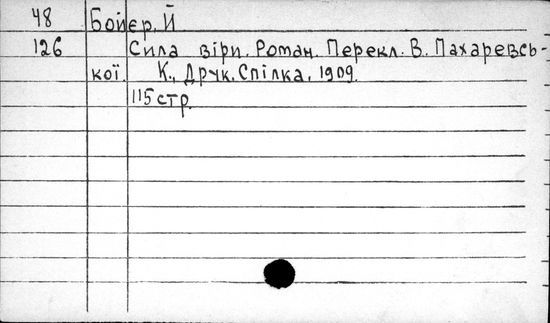 48 Бойєр, Й
126 Сила віри. Роман. Перекл. В. Пахаревсь-
кої. К., Друк. Спілка, 1909.
115 стр.